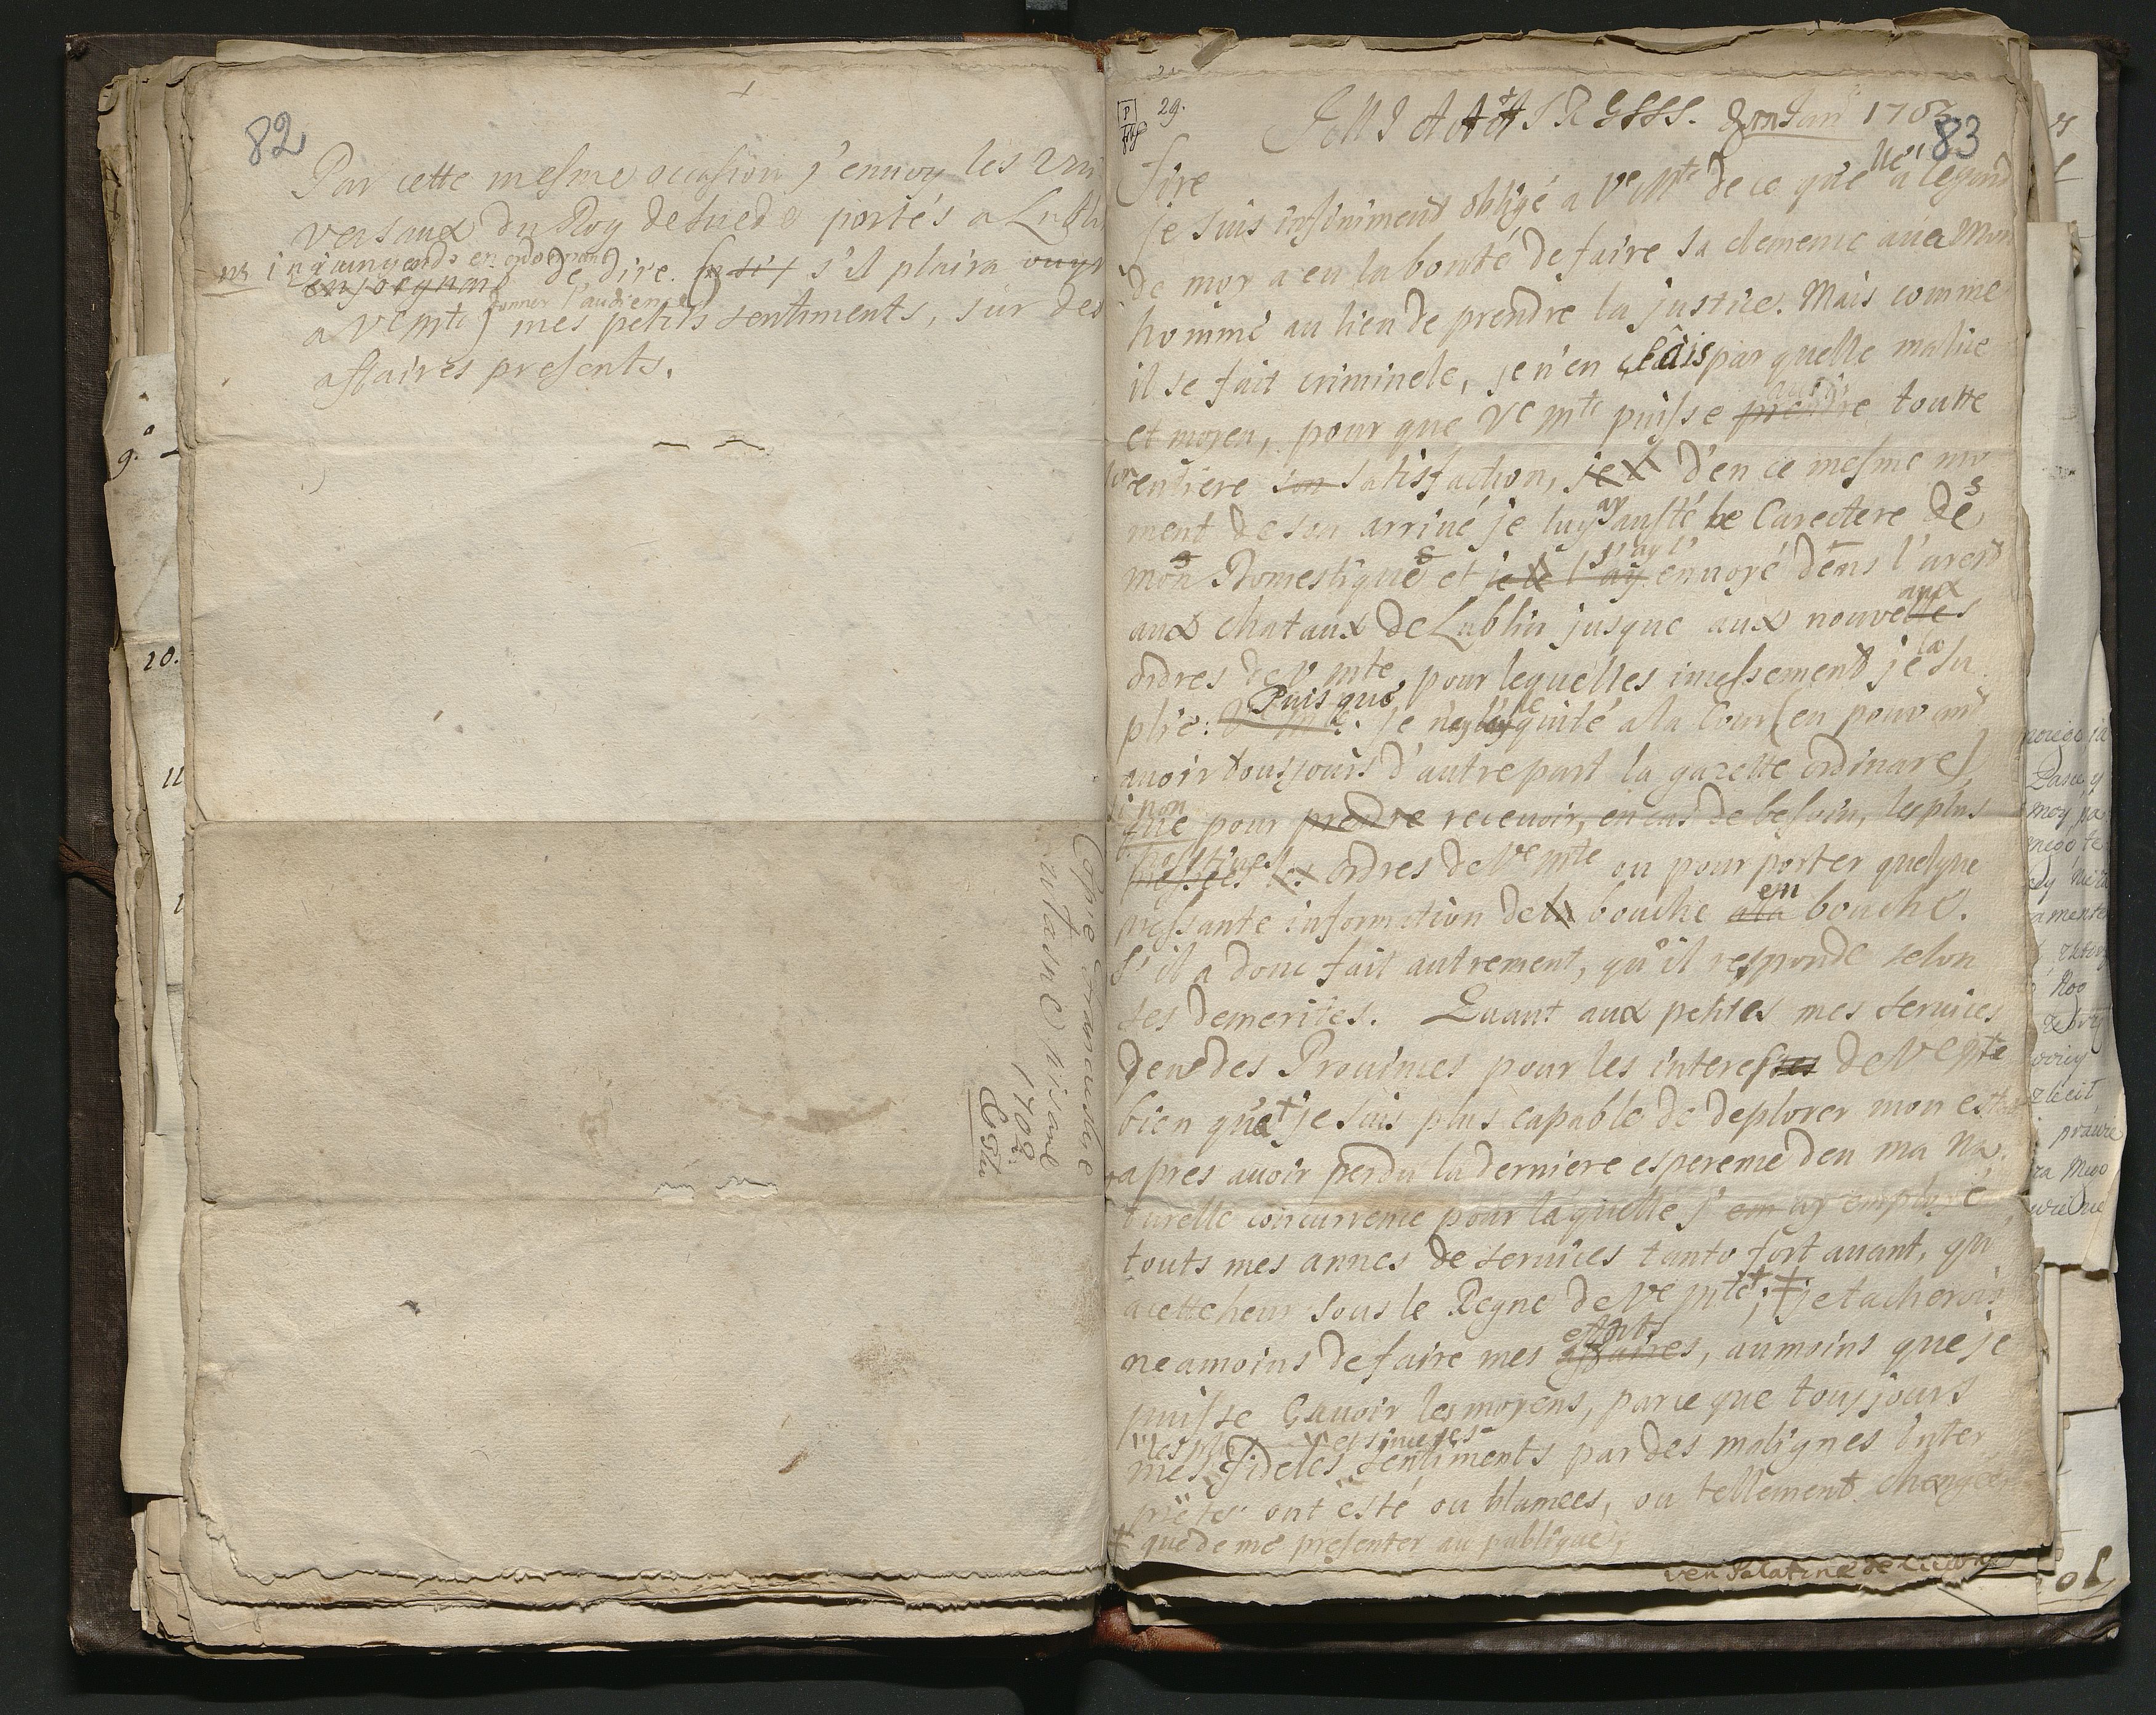 82
Par cette mesme occasion j'envoy les Uni
versaux du Roy de Suede portés a Lubli
de dire s'il plaira
donner l'audience
a Ve Mte) mes petits sentiments, sur des
affaires presents.
Copie Francuskie
własne pisane
1702.
29.
Jan 1703
83
Sire
je suis infiniment obligé a Ve Mte de ce que a l'egard
de moy a eu la bonté de faire sa clemence avec mon
homme au lieu de prendre la justice. Mais comme
il se fait criminele, je n'en sçais par quelle malice
et moyen, pour que Ve Mte puisse prendre toutte
entiere son satisfaction, je d'en ce mesme mo
ment de son arrivé je luy ay austé le Carectere des
mons Domestiques et je le l'ay envoyé dens l'arest
aux chataux de Lublin jusque aux nouvelles
aux
ordres de V Mte pour lequelles incessement je la su
plie. Puis que je n'ay quité a la Cour (en pouvant
avoir tousjours d'autre part la gazette ordinare)
si non
que pour prendre recevoir, en cas de besoin, les plus
les ordres de Ve Mte ou pour porter quelque
pressante information de la bouche a la bouche.
en
S'il a donc fait autrement, qu'il responde selon
ses demerites. Quant aux petites mes services
den des Provinces pour les interesses de Ve Mte
bien que je suis plus capable de deplorer mon estat
apres avoir perdu la derniere esperence den ma Na
turelle concurrence pour laquelle j'em ay emploié
touts mes annes de services tanto fort avant, qu'
acette heur sous le Regne de Ve Mte; ‡ je tacherois
neamoins de faire mes affaires, aumoins que je
efforts
puisse Savoir les moyens, parce que tousjours
les plus et sinceres
mes fideles sentiments par des malignes Inter
prètes ont esté ou blamees, ou tellement changées
‡ que de me presenter au publique;
ven Palatine de
9.
10.
11